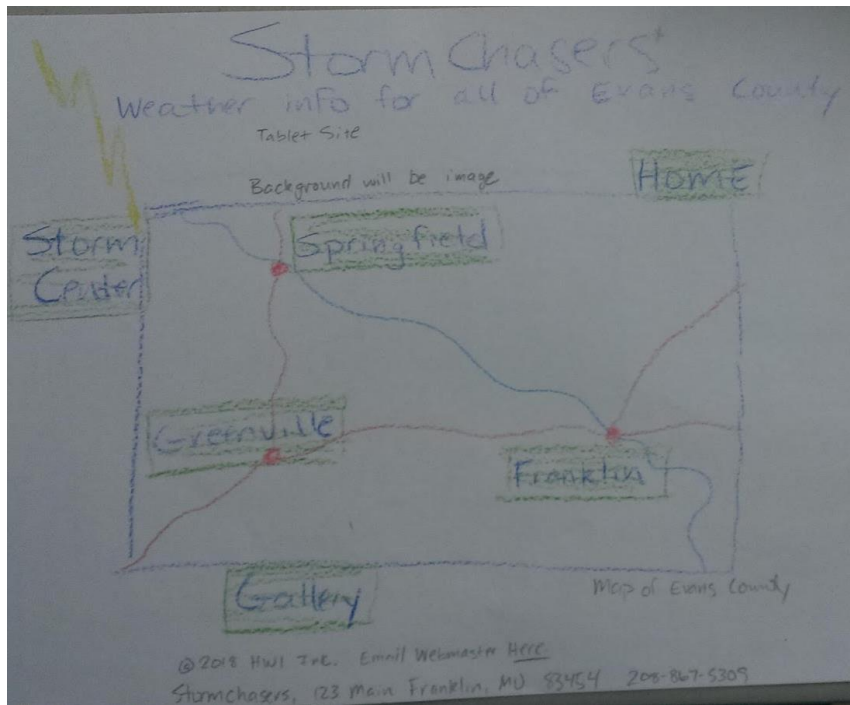 Storm Chasers
Weather info for all of Evans County
Tablet Site
Background will be image
HOME
Storm
Center
Springfield
Greenville
Franklin
Gallery
Map of Evans County
© 2018 HWI Inc. Email Webmaster Here
Stormchasers, 123 Main Franklin, MO 83454 208-867-5309